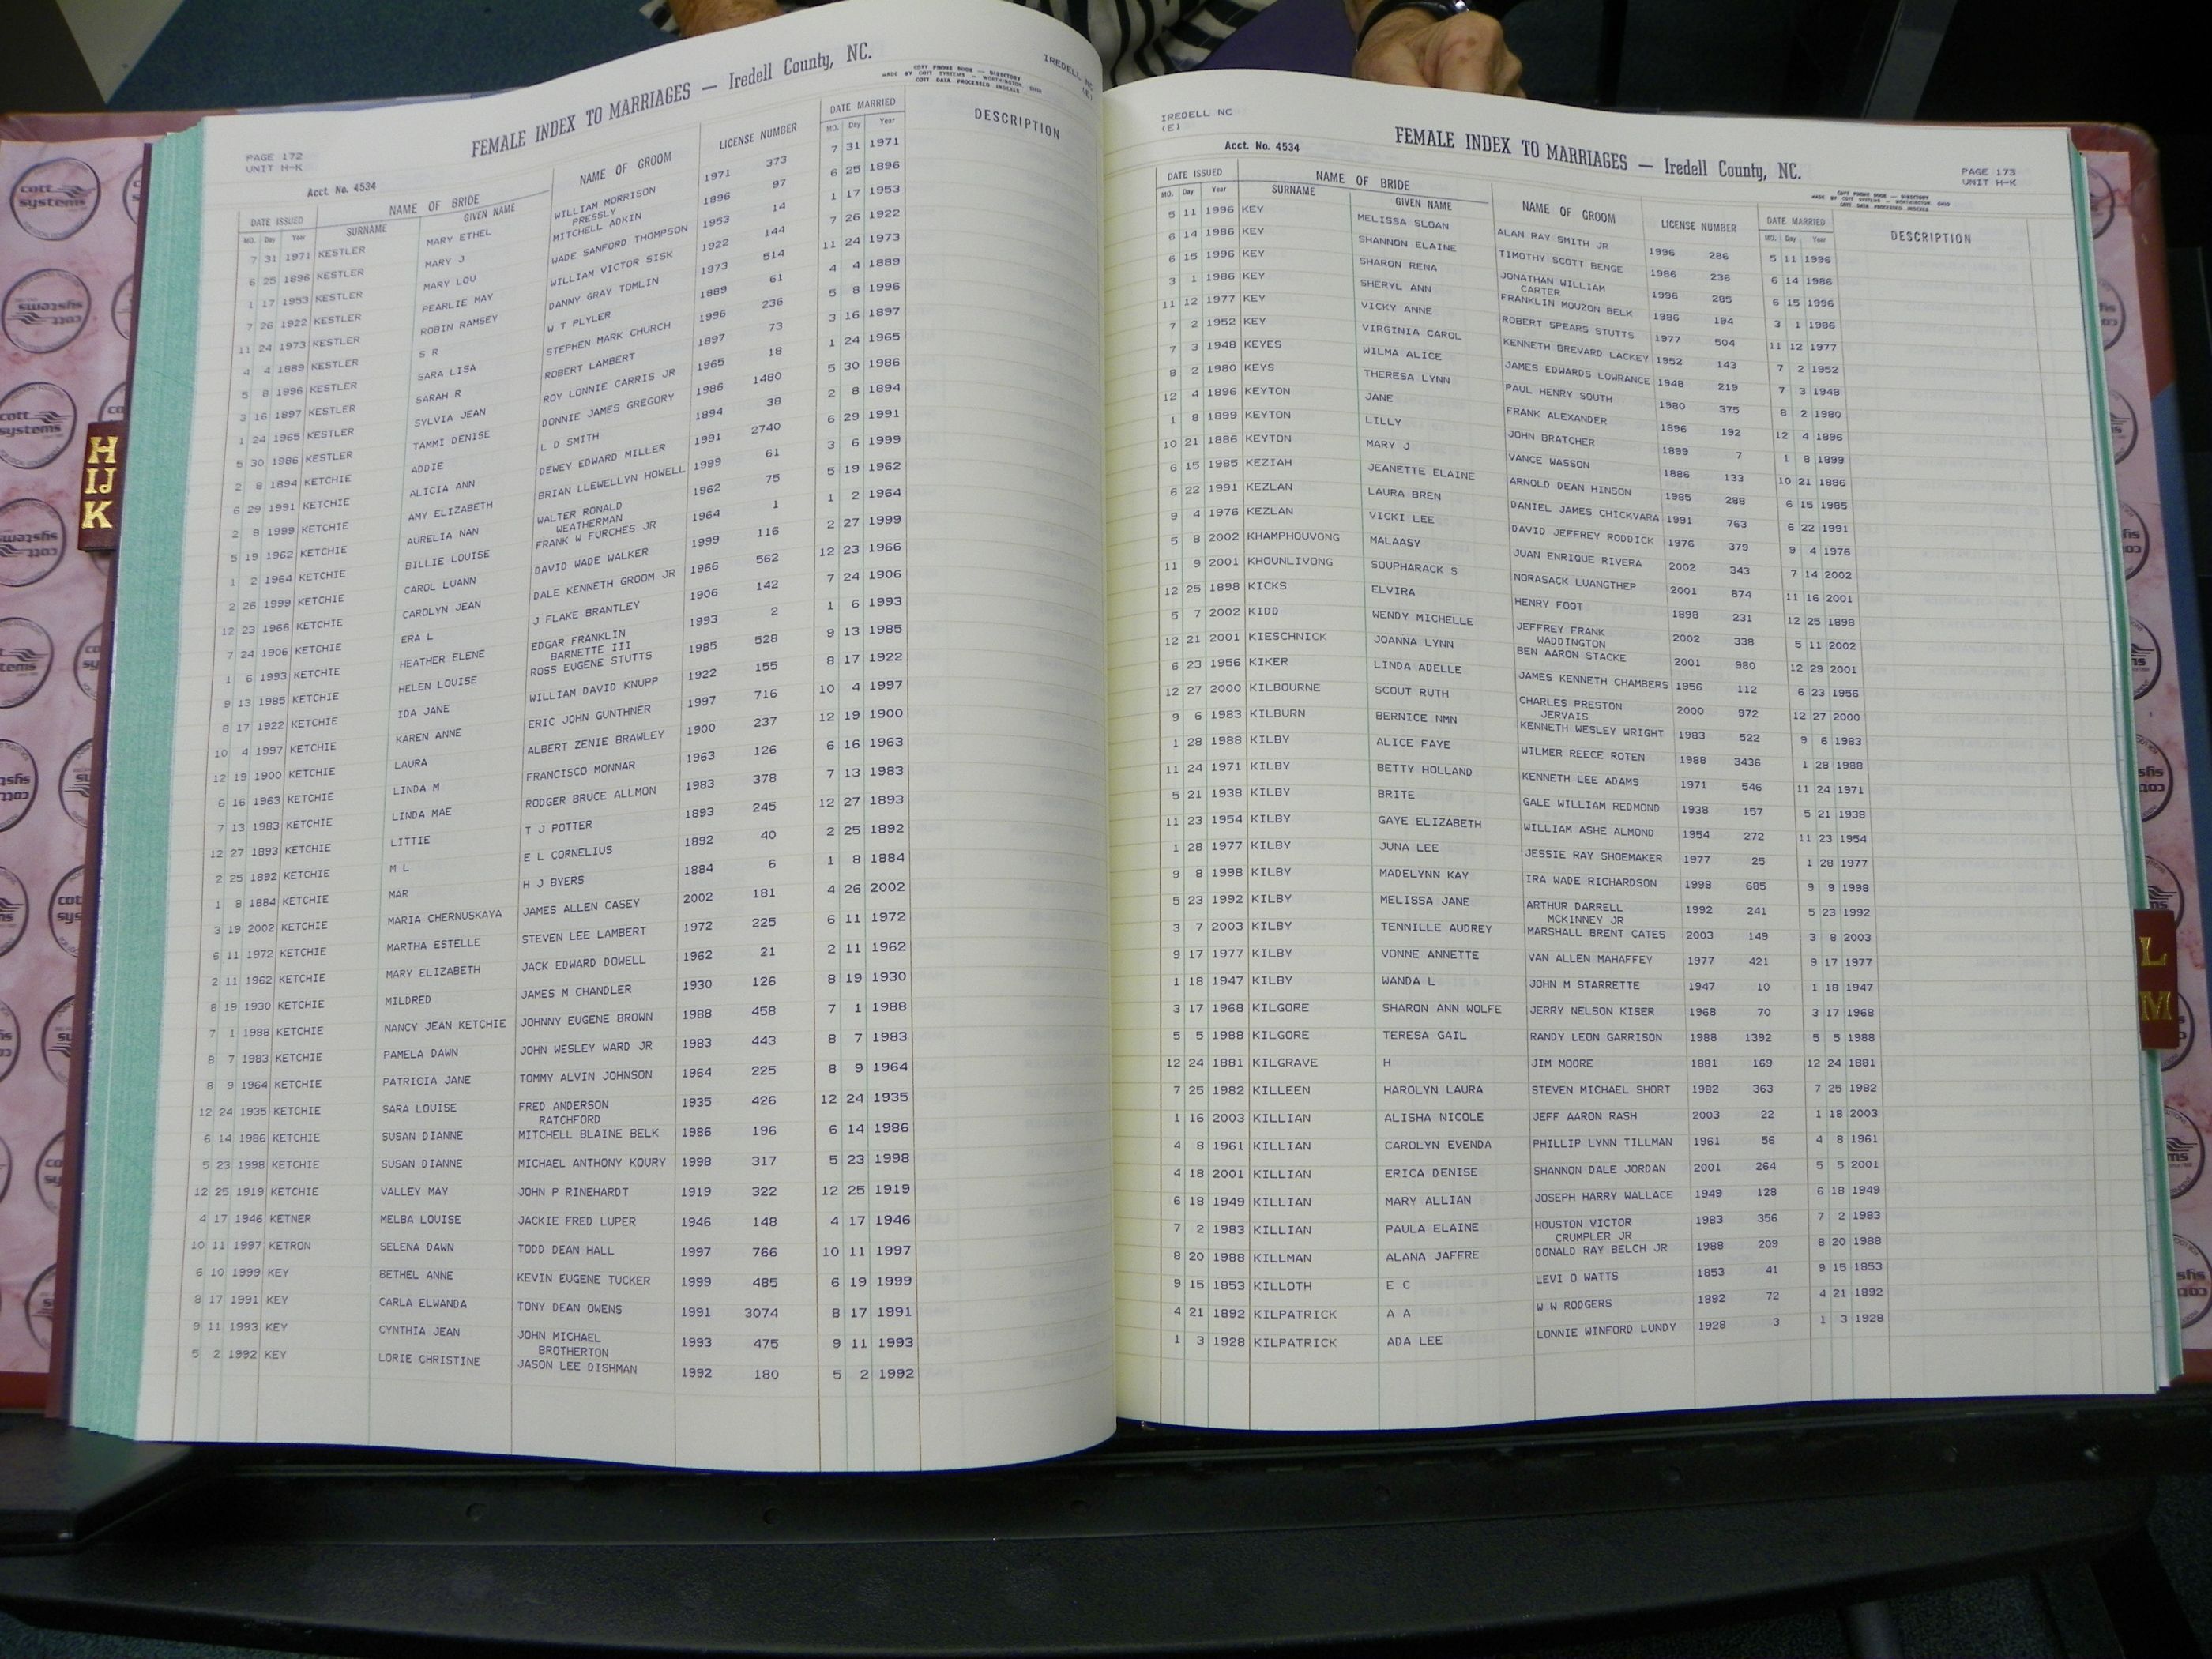 PAGE 172
UNIT H-K
FEMALE INDEX TO MARRIAGES — Iredell County, NC.
COTT PHONE BOOK — DIRECTORY
MADE BY COTT SYSTEMS — WORTHINGTON OHIO
COTT DATA PROCESSED INDEXES
IREDELL NC
(E)
Acct. No. 4534
DATE ISSUED NAME OF BRIDE NAME OF GROOM LICENSE NUMBER DATE MARRIED DESCRIPTION
MO. Day Year SURNAME GIVEN NAME MO. Day Year
7 31 1971 KESTLER MARY ETHEL WILLIAM MORRISON 1971 373 7 31 1971
PRESSLY
6 25 1896 KESTLER MARY J MITCHELL ADKIN 1896 97 6 25 1896
1 17 1953 KESTLER MARY LOU WADE SANFORD THOMPSON 1953 14 1 17 1953
7 26 1922 KESTLER PEARLIE MAY WILLIAM VICTOR SISK 1922 144 7 26 1922
11 24 1973 KESTLER ROBIN RAMSEY DANNY GRAY TOMLIN 1973 514 11 24 1973
4 4 1889 KESTLER S R W T PLYLER 1889 61 4 4 1889
5 8 1996 KESTLER SARA LISA STEPHEN MARK CHURCH 1996 236 5 8 1996
3 16 1897 KESTLER SARAH R ROBERT LAMBERT 1897 73 3 16 1897
1 24 1965 KESTLER SYLVIA JEAN ROY LONNIE CARRIS JR 1965 18 1 24 1965
5 30 1986 KESTLER TAMMI DENISE DONNIE JAMES GREGORY 1986 1480 5 30 1986
2 8 1894 KETCHIE ADDIE L D SMITH 1894 38 2 8 1894
6 29 1991 KETCHIE ALICIA ANN DEWEY EDWARD MILLER 1991 2740 6 29 1991
2 8 1999 KETCHIE AMY ELIZABETH BRIAN LLEWELLYN HOWELL 1999 61 3 6 1999
5 19 1962 KETCHIE AURELIA NAN WALTER RONALD 1962 75 5 19 1962
WEATHERMAN
1 2 1964 KETCHIE BILLIE LOUISE FRANK W FURCHES JR 1964 1 1 2 1964
2 26 1999 KETCHIE CAROL LUANN DAVID WADE WALKER 1999 116 2 27 1999
12 23 1966 KETCHIE CAROLYN JEAN DALE KENNETH GROOM JR 1966 562 12 23 1966
7 24 1906 KETCHIE ERA L J FLAKE BRANTLEY 1906 142 7 24 1906
1 6 1993 KETCHIE HEATHER ELENE EDGAR FRANKLIN 1993 2 1 6 1993
BARNETTE III
9 13 1985 KETCHIE HELEN LOUISE ROSS EUGENE STUTTS 1985 528 9 13 1985
8 17 1922 KETCHIE IDA JANE WILLIAM DAVID KNUPP 1922 155 8 17 1922
10 4 1997 KETCHIE KAREN ANNE ERIC JOHN GUNTHNER 1997 716 10 4 1997
12 19 1900 KETCHIE LAURA ALBERT ZENIE BRAWLEY 1900 237 12 19 1900
6 16 1963 KETCHIE LINDA M FRANCISCO MONNAR 1963 126 6 16 1963
7 13 1983 KETCHIE LINDA MAE RODGER BRUCE ALLMON 1983 378 7 13 1983
12 27 1893 KETCHIE LITTIE T J POTTER 1893 245 12 27 1893
2 25 1892 KETCHIE M L E L CORNELIUS 1892 40 2 25 1892
1 8 1884 KETCHIE MAR H J BYERS 1884 6 1 8 1884
3 19 2002 KETCHIE MARIA CHERNUSKAYA JAMES ALLEN CASEY 2002 181 4 26 2002
6 11 1972 KETCHIE MARTHA ESTELLE STEVEN LEE LAMBERT 1972 225 6 11 1972
2 11 1962 KETCHIE MARY ELIZABETH JACK EDWARD DOWELL 1962 21 2 11 1962
8 19 1930 KETCHIE MILDRED JAMES M CHANDLER 1930 126 8 19 1930
7 1 1988 KETCHIE NANCY JEAN KETCHIE JOHNNY EUGENE BROWN 1988 458 7 1 1988
8 7 1983 KETCHIE PAMELA DAWN JOHN WESLEY WARD JR 1983 443 8 7 1983
8 9 1964 KETCHIE PATRICIA JANE TOMMY ALVIN JOHNSON 1964 225 8 9 1964
12 24 1935 KETCHIE SARA LOUISE FRED ANDERSON 1935 426 12 24 1935
RATCHFORD
6 14 1986 KETCHIE SUSAN DIANNE MITCHELL BLAINE BELK 1986 196 6 14 1986
5 23 1998 KETCHIE SUSAN DIANNE MICHAEL ANTHONY KOURY 1998 317 5 23 1998
12 25 1919 KETCHIE VALLEY MAY JOHN P RINEHARDT 1919 322 12 25 1919
4 17 1946 KETNER MELBA LOUISE JACKIE FRED LUPER 1946 148 4 17 1946
10 11 1997 KETRON SELENA DAWN TODD DEAN HALL 1997 766 10 11 1997
6 10 1999 KEY BETHEL ANNE KEVIN EUGENE TUCKER 1999 485 6 19 1999
8 17 1991 KEY CARLA ELWANDA TONY DEAN OWENS 1991 3074 8 17 1991
9 11 1993 KEY CYNTHIA JEAN JOHN MICHAEL 1993 475 9 11 1993
BROTHERTON
5 2 1992 KEY LORIE CHRISTINE JASON LEE DISHMAN 1992 180 5 2 1992
IREDELL NC
(E)
Acct. No. 4534
FEMALE INDEX TO MARRIAGES — Iredell County, NC.
PAGE 173
UNIT H-K
COTT PHONE BOOK — DIRECTORY
MADE BY COTT SYSTEMS — WORTHINGTON OHIO
COTT DATA PROCESSED INDEXES
DATE ISSUED NAME OF BRIDE NAME OF GROOM LICENSE NUMBER DATE MARRIED DESCRIPTION
MO. Day Year SURNAME GIVEN NAME MO. Day Year
5 11 1996 KEY MELISSA SLOAN ALAN RAY SMITH JR 1996 286 5 11 1996
6 14 1986 KEY SHANNON ELAINE TIMOTHY SCOTT BENGE 1986 236 6 14 1986
6 15 1996 KEY SHARON RENA JONATHAN WILLIAM 1996 285 6 15 1996
CARTER
3 1 1986 KEY SHERYL ANN FRANKLIN MOUZON BELK 1986 194 3 1 1986
11 12 1977 KEY VICKY ANNE ROBERT SPEARS STUTTS 1977 504 11 12 1977
7 2 1952 KEY VIRGINIA CAROL KENNETH BREVARD LACKEY 1952 143 7 2 1952
7 3 1948 KEYES WILMA ALICE JAMES EDWARDS LOWRANCE 1948 219 7 3 1948
8 2 1980 KEYS THERESA LYNN PAUL HENRY SOUTH 1980 375 8 2 1980
12 4 1896 KEYTON JANE FRANK ALEXANDER 1896 192 12 4 1896
1 8 1899 KEYTON LILLY JOHN BRATCHER 1899 7 1 8 1899
10 21 1886 KEYTON MARY J VANCE WASSON 1886 133 10 21 1886
6 15 1985 KEZIAH JEANETTE ELAINE ARNOLD DEAN HINSON 1985 288 6 15 1985
6 22 1991 KEZLAN LAURA BREN DANIEL JAMES CHICKVARA 1991 763 6 22 1991
9 4 1976 KEZLAN VICKI LEE DAVID JEFFREY RODDICK 1976 379 9 4 1976
5 8 2002 KHAMPHOUVONG MALAASY JUAN ENRIQUE RIVERA 2002 343 7 14 2002
11 9 2001 KHOUNLIVONG SOUPHARACK S NORASACK LUANGTHEP 2001 874 11 16 2001
12 25 1898 KICKS ELVIRA HENRY FOOT 1898 231 12 25 1898
5 7 2002 KIDD WENDY MICHELLE JEFFREY FRANK 2002 338 5 11 2002
WADDINGTON
12 21 2001 KIESCHNICK JOANNA LYNN BEN AARON STACKE 2001 980 12 29 2001
6 23 1956 KIKER LINDA ADELLE JAMES KENNETH CHAMBERS 1956 112 6 23 1956
12 27 2000 KILBOURNE SCOUT RUTH CHARLES PRESTON 2000 972 12 27 2000
JERVAIS
9 6 1983 KILBURN BERNICE NMN KENNETH WESLEY WRIGHT 1983 522 9 6 1983
1 28 1988 KILBY ALICE FAYE WILMER REECE ROTEN 1988 3436 1 28 1988
11 24 1971 KILBY BETTY HOLLAND KENNETH LEE ADAMS 1971 546 11 24 1971
5 21 1938 KILBY BRITE GALE WILLIAM REDMOND 1938 157 5 21 1938
11 23 1954 KILBY GAYE ELIZABETH WILLIAM ASHE ALMOND 1954 272 11 23 1954
1 28 1977 KILBY JUNA LEE JESSIE RAY SHOEMAKER 1977 25 1 28 1977
9 8 1998 KILBY MADELYNN KAY IRA WADE RICHARDSON 1998 685 9 9 1998
5 23 1992 KILBY MELISSA JANE ARTHUR DARRELL 1992 241 5 23 1992
MCKINNEY JR
3 7 2003 KILBY TENNILLE AUDREY MARSHALL BRENT CATES 2003 149 3 8 2003
9 17 1977 KILBY VONNE ANNETTE VAN ALLEN MAHAFFEY 1977 421 9 17 1977
1 18 1947 KILBY WANDA L JOHN M STARRETTE 1947 10 1 18 1947
3 17 1968 KILGORE SHARON ANN WOLFE JERRY NELSON KISER 1968 70 3 17 1968
5 5 1988 KILGORE TERESA GAIL RANDY LEON GARRISON 1988 1392 5 5 1988
12 24 1881 KILGRAVE H JIM MOORE 1881 169 12 24 1881
7 25 1982 KILLEEN HAROLYN LAURA STEVEN MICHAEL SHORT 1982 363 7 25 1982
1 16 2003 KILLIAN ALISHA NICOLE JEFF AARON RASH 2003 22 1 18 2003
4 8 1961 KILLIAN CAROLYN EVENDA PHILLIP LYNN TILLMAN 1961 56 4 8 1961
4 18 2001 KILLIAN ERICA DENISE SHANNON DALE JORDAN 2001 264 5 5 2001
6 18 1949 KILLIAN MARY ALLIAN JOSEPH HARRY WALLACE 1949 128 6 18 1949
7 2 1983 KILLIAN PAULA ELAINE HOUSTON VICTOR 1983 356 7 2 1983
CRUMPLER JR
8 20 1988 KILLMAN ALANA JAFFRE DONALD RAY BELCH JR 1988 209 8 20 1988
9 15 1853 KILLOTH E C LEVI O WATTS 1853 41 9 15 1853
4 21 1892 KILPATRICK A A W W RODGERS 1892 72 4 21 1892
1 3 1928 KILPATRICK ADA LEE LONNIE WINFORD LUNDY 1928 3 1 3 1928
H
IJ
K
L
M
cott
systems